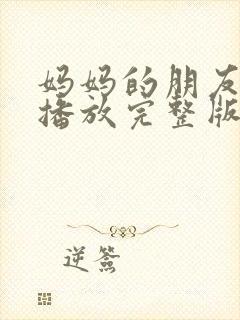 妈妈的朋友
播放完整版
逆签